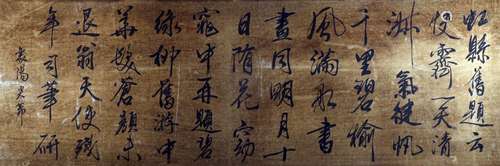 虹縣舊題云
快霽一天清
淑氣健帆
千里碧榆
風滿船書
畫同明月十
日隋花窈
窕中再題碧
綠柳舊游中
華髮蒼顏未
退翁天使殘
年司筆研
襄陽米芾